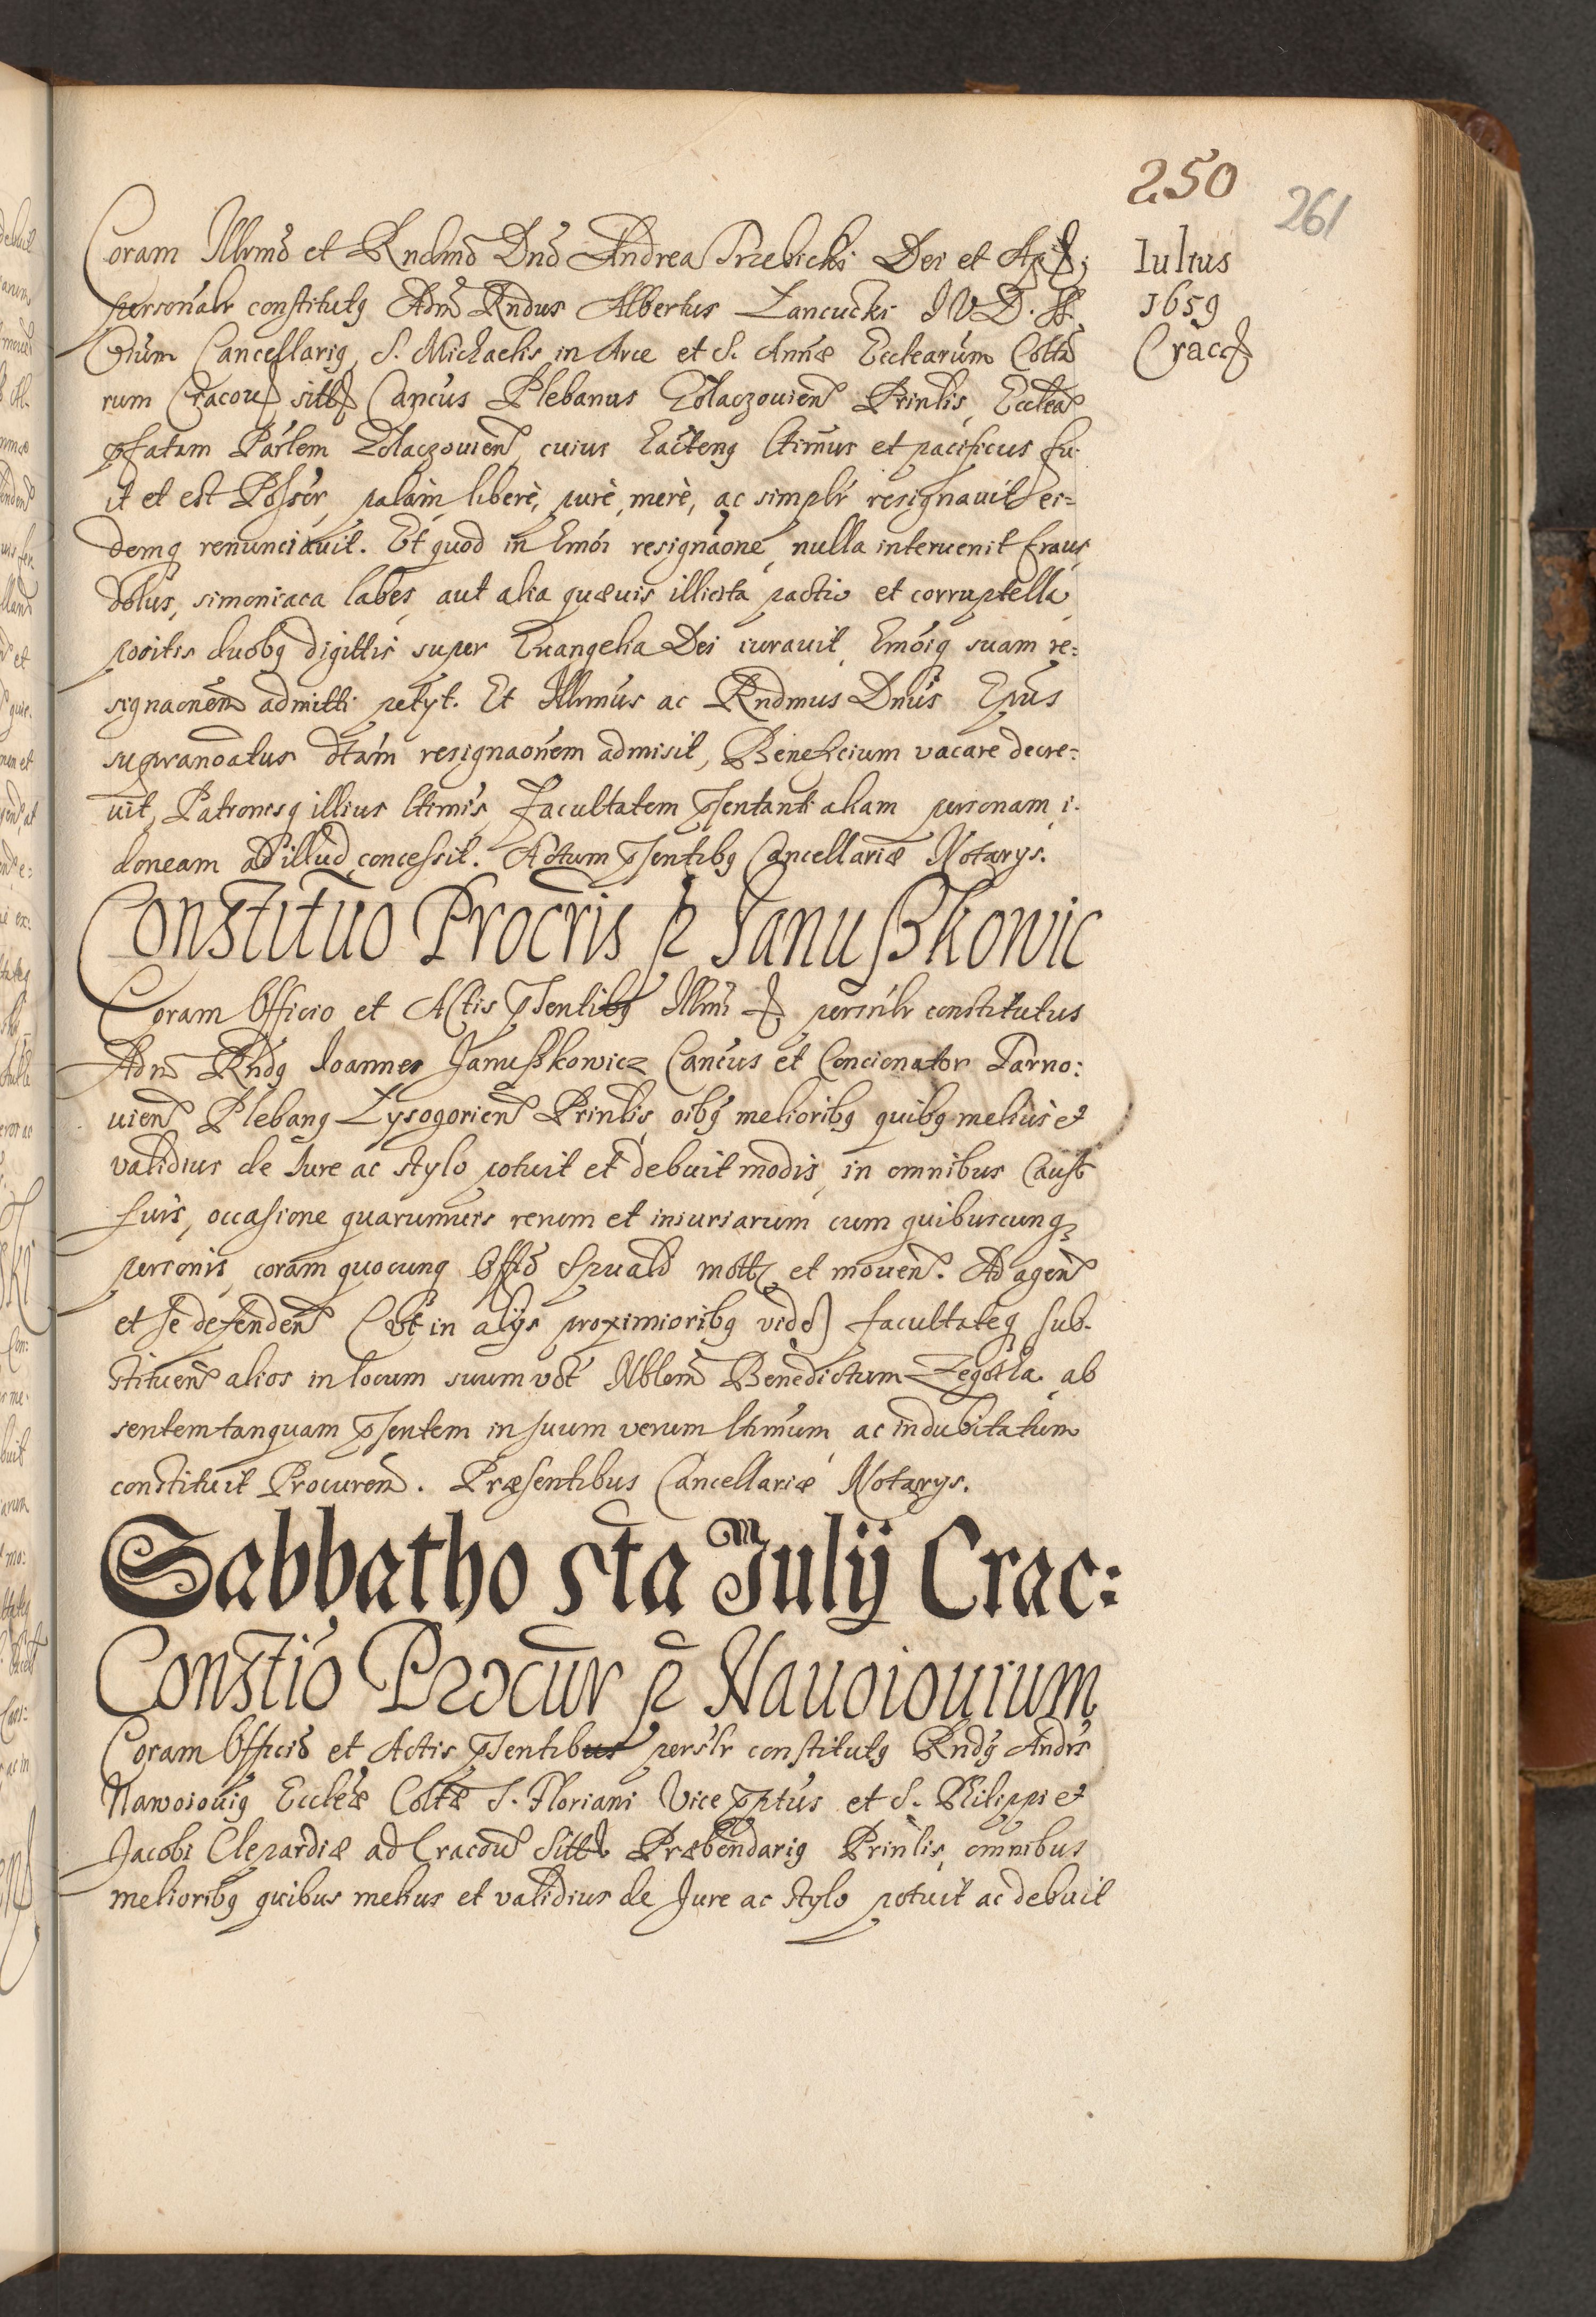 250
261
Iulius
1659
Cracę
Coram Illrmo et Rndmo Dno Andrea Trzebicki Dei et Ap
personalr constitutq Adm Rndus Albertus Lancucki I V D. SS.
Cõium Cancellariq S. Michaelis in Arce et S. Annæ Ecclearum Colta
rum Cracou sitt Cancus Plebanus Zolaczouien Prinlis, Ecclea
pfatam Parlem Zolaczouien, cuius hacteng ltimus et pacificus fu-
it et est Possor, palàm liberè, purè, merè, ac simplr resignauit ei=
demq renunciauit. Et quod in hmoi resignaone, nulla interuenit fraus,
dolus, simoniaca labes, aut alia quæuis illicita pactio et corruptella,
positis duobq digittis super Euangelia Dei iurauit, hmoiq suam re=
signaonem admitti petyt. Et Illrmus ac Rndmus Dnus Epus
supranoatus dtam resignaonem admisit, Beneficium vacare decre=
uit, Patronisq illius ltimis, facultatem psentanti aliam personam i-
doneam ad illud concessit. Actum psentibq Cancellariæ Notarys.
Constituo Procris p Janußkowic
Coram Officio et Actis psentibq Illrmi personlr constitutus
Adm Rndq Ioannes Janußkowicz Cancus et Concionator Tarno:
uien Plebanq Lysogorien Prinlis, oibq melioribq quibq melius et
validius de Iure ac stylo potuit et debuit modis, in omnibus Caus
suis, occasione quarumuis rerum et iniuriarum cum quibuscunq
personis, coram quocunq Offo Spuali mott et mouen. Ad agen
et se defenden (vt in alys proximioribq vide) facultateq sub-
stituen alios in locum suum vdt Nblem Benedictum Zegotha, ab
sentem tanquam psentem in suum verum ltimum ac indubitatum
constituit Procurem. Præsentibus Cancellariæ Notarys.
Sabbatho 5ta Julij Crac:
Constio Procur p Nauoiouium
Coram Officio et Actis psentibus perslr constitutq Rndq Andrs
Nawoiouiq Eccleæ Coltæ S. Floriani Vice pptus et S. Philippi et
Jacobi Clepardiæ ad Cracou sitt Præbendariq Prinlis, omnibus
melioribq quibus melius et validius de Jure ac stylo potuit ac debuit